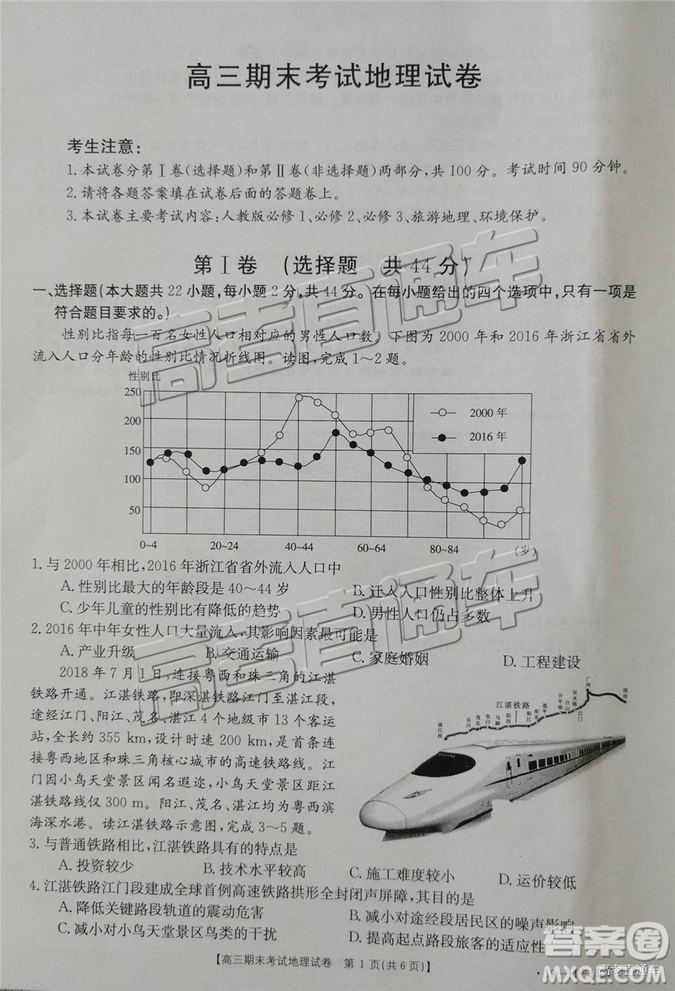 高三期末考试地理试卷
考生注意:
1.本试卷分第Ⅰ卷(选择题)和第Ⅱ卷(非选择题)两部分,共100分。考试时间90分钟。
2.请将各题答案填在试卷后面的答题卷上。
3.本试卷主要考试内容:人教版必修1、必修2、必修3、旅游地理、环境保护。
第Ⅰ卷 (选择题 共44分)
一、选择题(本大题共22小题,每小题2分,共44分。在每小题给出的四个选项中,只有一项是
符合题目要求的。)
性别比指每一百名女性人口相对应的男性人口数。下图为2000年和2016年浙江省省外
流入人口分年龄的性别比情况折线图。读图,完成1~2题。
性别比
250
200
150
100
50
2000年
2016年
0~4 20~24 40~44 60~64 80~84 (岁)
1.与2000年相比,2016年浙江省省外流入人口中
A.性别比最大的年龄段是40~44岁 B.迁入人口性别比整体上升
C.少年儿童的性别比有降低的趋势 D.男性人口仍占多数
2.2016年中年女性人口大量流入,其影响因素最可能是
A.产业升级 B.交通运输 C.家庭婚姻 D.工程建设
2018年7月1日,连接粤西和珠三角的江湛
铁路开通。江湛铁路,即深湛铁路江茂至茂湛段,
途经江门、阳江、茂名、湛江4个地级市13个客运
站,全长约355 km,设计时速200 km,是首条连
接粤西和珠三角核心城市的高速铁路线。江
门因小鸟天堂景区闻名遐迩,小鸟天堂景区距江
湛铁路仅300 m。阳江、茂名、湛江均为粤西滨
海深水港。读江湛铁路示意图,完成3~5题。
江湛铁路
3.与普通铁路相比,江湛铁路具有的特点是
A.投资较少 B.技术水平较高 C.施工难度较小 D.运价较低
4.江湛铁路江门段建成全球首例高速铁路拱形全封闭声屏障,其目的是
A.降低关键路段轨道的震动危害 B.减小对途经段居民区的噪声影响
C.减小对小鸟天堂景区鸟类的干扰 D.提高起点路段居民生活舒适度
【高三期末考试地理试卷 第1页(共6页)】
高考直通车
答案卷
MXQE.COM